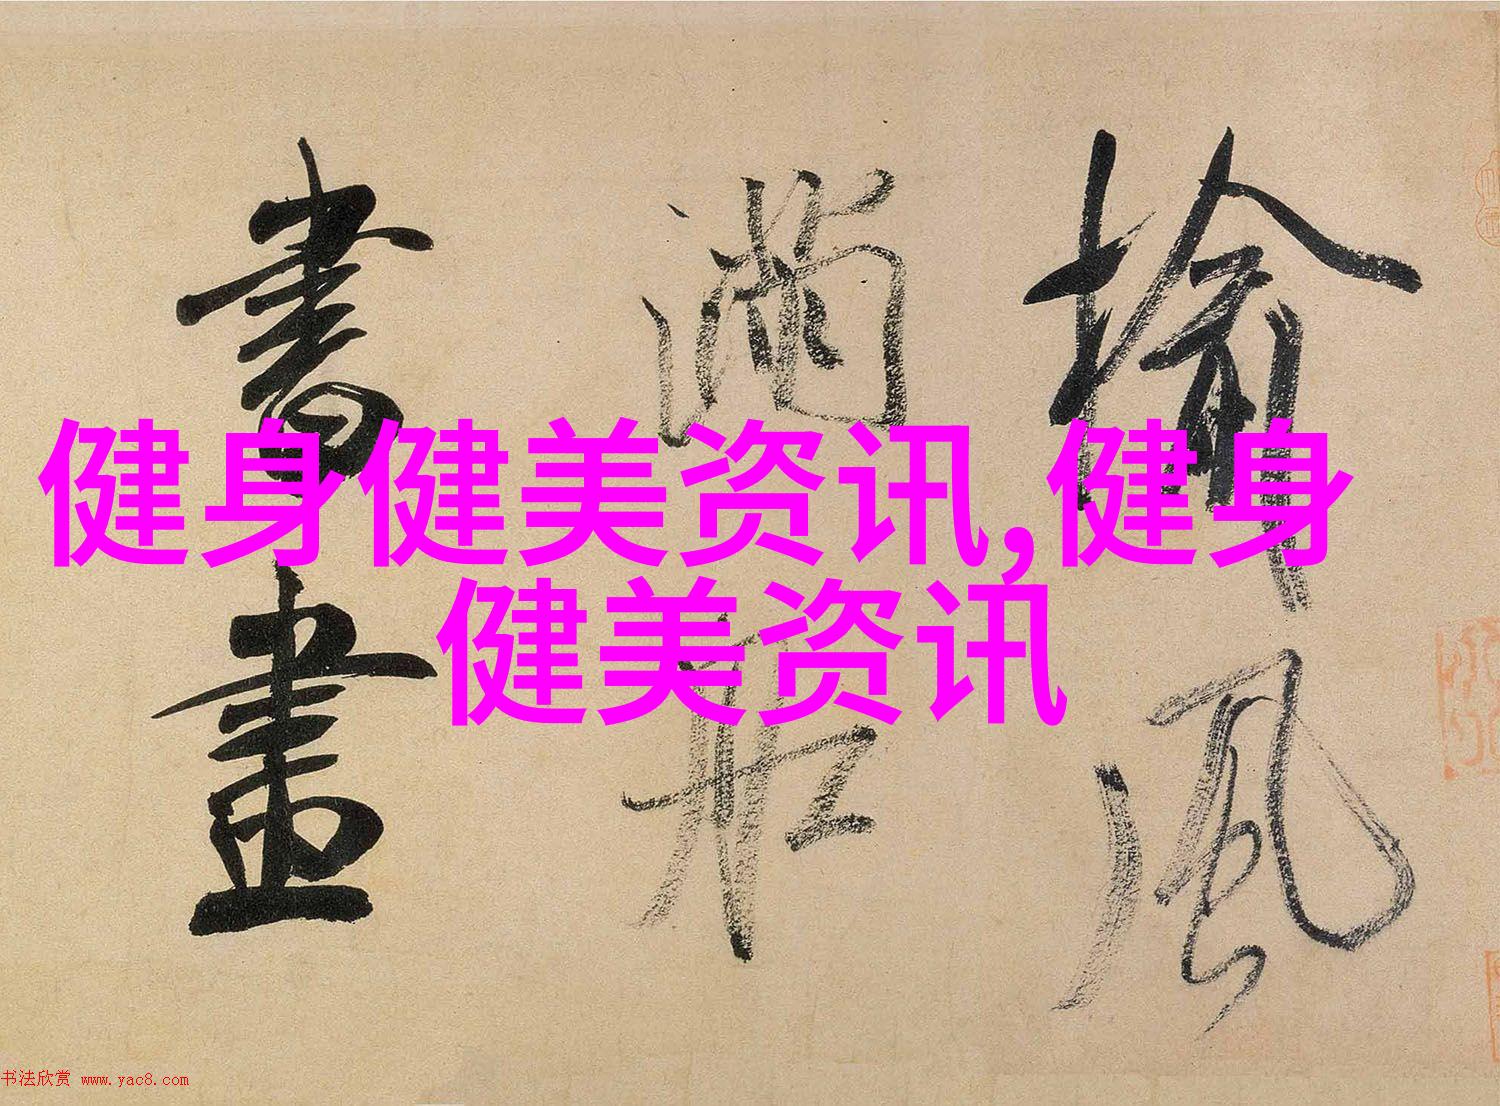 健身健美资讯,健身
健美资讯
揄
風
满
船
書
畫
书法欣赏 www.yac8.com